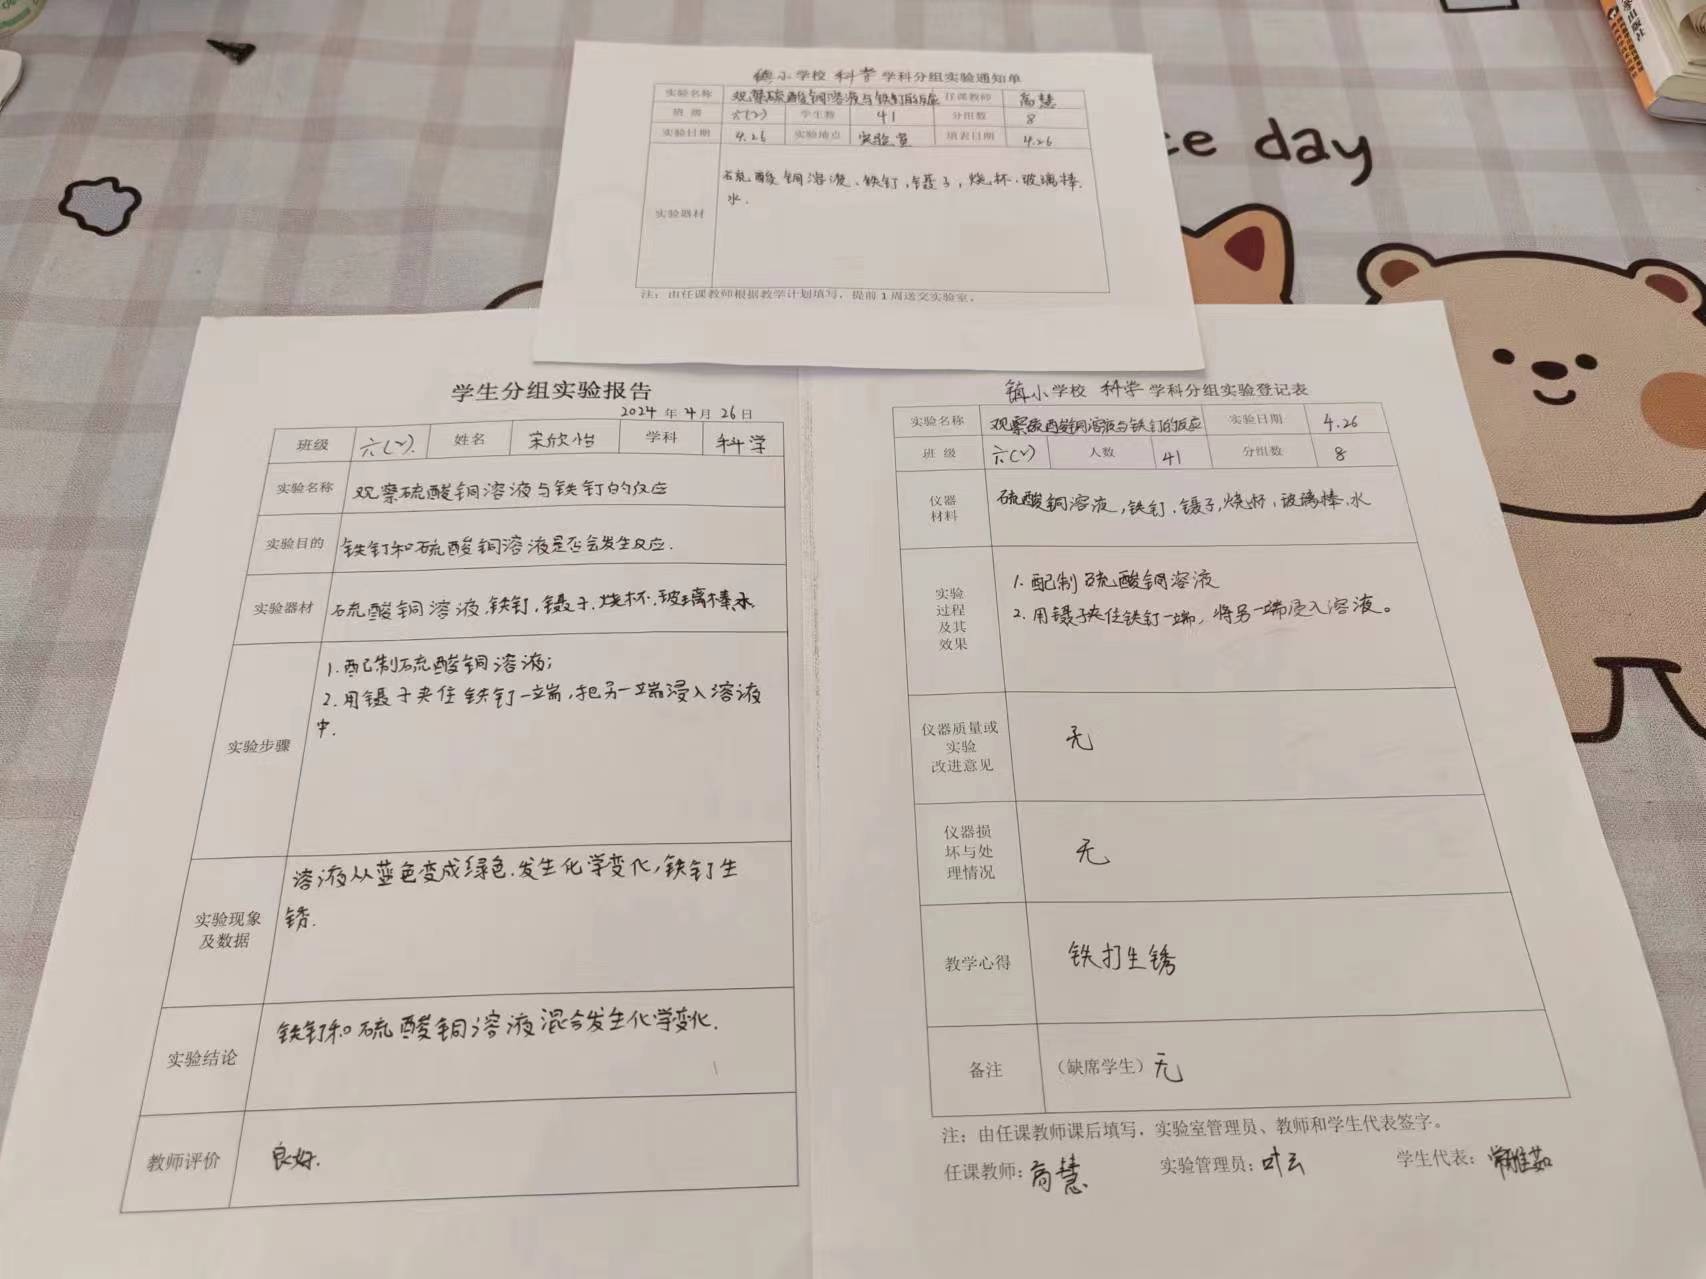 家出版社
ce day
镇小学校 科学 学科分组实验通知单
实验名称 观察硫酸铜溶液与铁钉的反应 任课教师 高慧
班 级 六(2) 学生数 41 分组数 8
实验日期 4.26 实验地点 实验室 填表日期 4.26
实验器材 硫酸铜溶液、铁钉,镊子,烧杯.玻璃棒.
水.
注:由任课教师根据教学计划填写,提前1周送交实验室。
学生分组实验报告
2024 年 4 月 26 日
班级 六(2). 姓名 宋欣怡 学科 科学
实验名称 观察硫酸铜溶液与铁钉的反应
实验目的 铁钉和硫酸铜溶液是否会发生反应.
实验器材 硫酸铜溶液,铁钉,镊子.烧杯.玻璃棒,水
实验步骤 1.配制硫酸铜溶液;
2.用镊子夹住铁钉一端,把另一端浸入溶液
中.
实验现象
及数据
溶液从蓝色变成绿色.发生化学变化,铁钉生
锈.
实验结论 铁钉和硫酸铜溶液混合发生化学变化.
教师评价 良好.
镇小学校 科学 学科分组实验登记表
实验名称 观察硫酸铜溶液与铁钉的反应 实验日期 4.26
班 级 六(2) 人数 41 分组数 8
仪器
材料
硫酸铜溶液,铁钉.镊子,烧杯.玻璃棒.水
实验
过程
及其
效果
1.配制硫酸铜溶液
2.用镊子夹住铁钉一端,将另一端浸入溶液。
仪器质量或
实验
改进意见
无
仪器损
坏与处
理情况
无
教学心得 铁打生锈
备注 (缺席学生)无
注:由任课教师课后填写,实验室管理员、教师和学生代表签字。
任课教师:高慧 实验管理员:叶云 学生代表:常雅茹